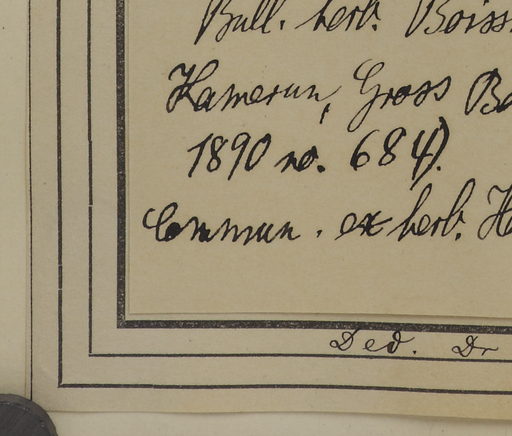 Bull. herb. Boiss
Kamerun, Gross Ba
1890 no. 684).
Commun. ex herb. H
Ded. Dr